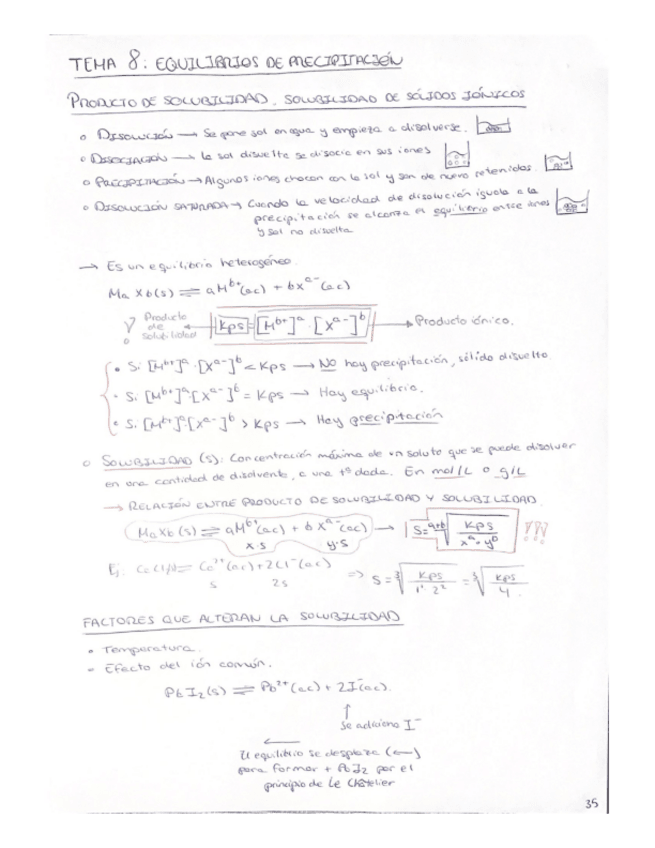 TEMA 8: EQUILIBRIOS DE PRECIPITACIÓN
PRODUCTO DE SOLUBILIDAD. SOLUBILIDAD DE SÓLIDOS IÓNICOS
o DISOLUCIÓN → Se pone sal en agua y empieza a disolverse.
o DISOCIACIÓN → La sal disuelta se disocia en sus iones
o PRECIPITACIÓN → Algunos iones chocan con la sal y son de nuevo retenidos.
o DISOLUCIÓN SATURADA → Cuando la velocidad de disolución iguala a la
precipitación se alcanza el equilibrio entre iones
y sal no disuelta
→ Es un equilibrio heterogéneo.
Ma Xb(s) ⇌ aM^b+(ac) + bX^a-(ac)
Producto de solubilidad ← Kps = [M^b+]^a · [X^a-]^b → Producto iónico.
• Si [M^b+]^a · [X^a-]^b < Kps → NO hay precipitación, sólido disuelto
• Si [M^b+]^a · [X^a-]^b = Kps → Hay equilibrio.
• Si [M^b+]^a · [X^a-]^b > Kps → Hay precipitación
o SOLUBILIDAD (s): Concentración máxima de un soluto que se puede disolver
en una cantidad de disolvente, a una tº dada. En mol/L o g/L
→ RELACIÓN ENTRE PRODUCTO DE SOLUBILIDAD Y SOLUBILIDAD
MaXb(s) ⇌ aM^b+(ac) + bX^a-(ac) → S = ^a+b√(Kps / x^a · y^b) !!
x·s y·s
Ej: ⇌ (ac) + 2Cl^-(ac) ⇒ S = ³√(Kps / 1¹·2²) = ³√(Kps / 4)
s 2s
FACTORES QUE ALTERAN LA SOLUBILIDAD
• Temperatura.
• Efecto del ión común.
PbI2(s) ⇌ Pb^2+(ac) + 2I^-(ac).
↑
Se adiciona I^-
←
El equilibrio se desplaza (←)
para formar + PbI2 por el
principio de Le Châtelier
35